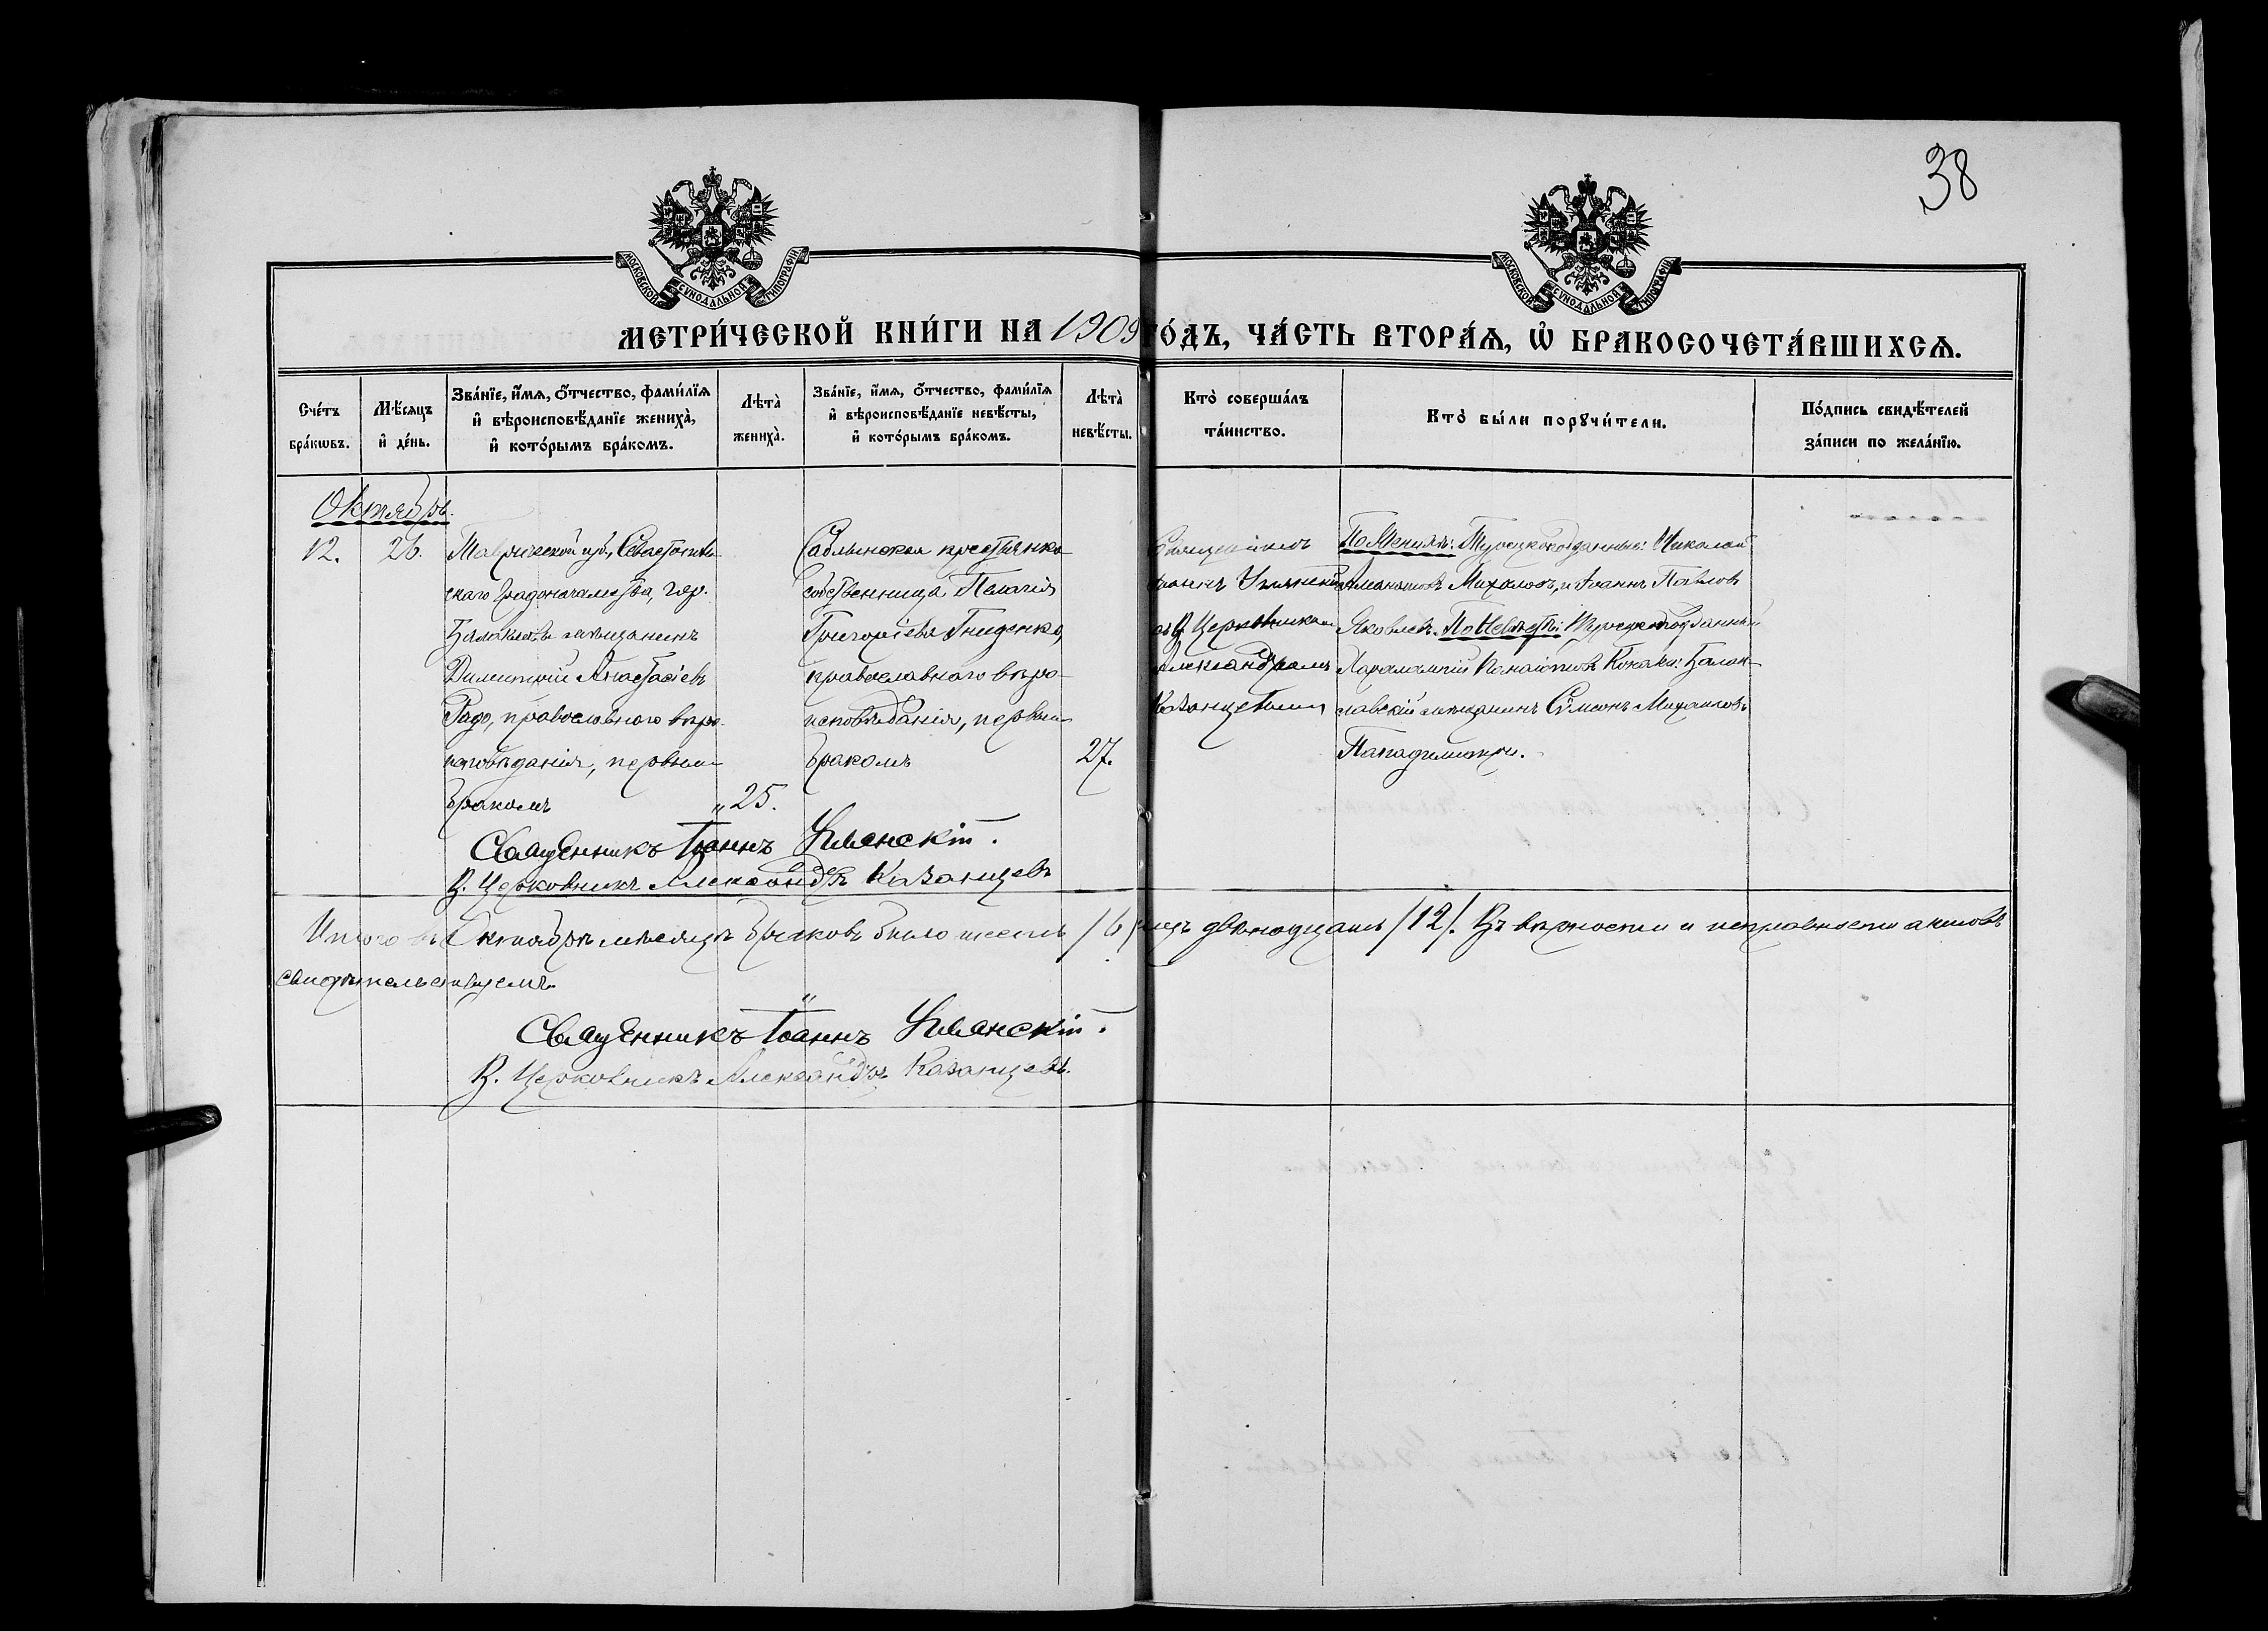 38
МОСКОВСКОЙ СѴНОДАЛЬНОЙ ТИПОГРАФІИ
МОСКОВСКОЙ СѴНОДАЛЬНОЙ ТИПОГРАФІИ
МЕТРИ́ЧЕСКОЙ КНИ́ГИ НА 1909 ГО́ДЪ, ЧА́СТЬ ВТОРА́Ѧ, Ѡ҆ БРАКОСОЧЕТА́ВШИХСѦ.
Сче́тъ бра́кѡвъ.
Мѣ́сѧцъ и҆ де́нь.
Зва́нїе, и҆́мѧ, о҆́тчество, фами́лїѧ
и҆ вѣроисповѣ́данїе жениха̀,
и҆ кото́рымъ бра́комъ.
Лѣта̀ жениха̀.
Зва́нїе, и҆́мѧ, о҆́тчество, фами́лїѧ
и҆ вѣроисповѣ́данїе невѣ́сты,
и҆ кото́рымъ бра́комъ.
Лѣта̀ невѣ́сты.
Кто̀ соверша́лъ та́инство.
Кто̀ бы́ли порꙋчи́тели.
По́дпись свидѣ́телей
за́писи по жела́нїю.
Октябрь.
12.
26.
Таврической губ., Севастополь-
скаго Градоначальства, гор.
Балаклавы мѣщанинъ
Димитрій Анастасіевъ
Радо, православнаго вѣро-
исповѣданія, первымъ
бракомъ
25.
Саблынская крестьянка
собственница Пелагія
Григоріева Гниденко,
православнаго вѣро-
исповѣданія, первымъ
бракомъ
27.
Священникъ
Іоаннъ
съ И. Церковникомъ
Александромъ
Казанцевымъ
По Женихѣ: Турецкоподданные: Николай
Михаловъ, и Іоаннъ Павловъ
Яковлевъ. По Невѣстѣ: Турецкоподданный
Харалампій Панаіотовъ: Балак-
лавскій мѣщанинъ Сѵмеонъ Михаиловъ
Пападимитри.
Священникъ Іоаннъ
И. Церковникъ Александръ Казанцевъ
Итого въ Октябрѣ мѣсяцѣ браковъ было шесть /6/ двѣнадцать /12/. Въ вѣрности и исправности актовъ
свидѣтельствуемъ.
Священникъ Іоаннъ
И. Церковникъ Александръ Казанцевъ.